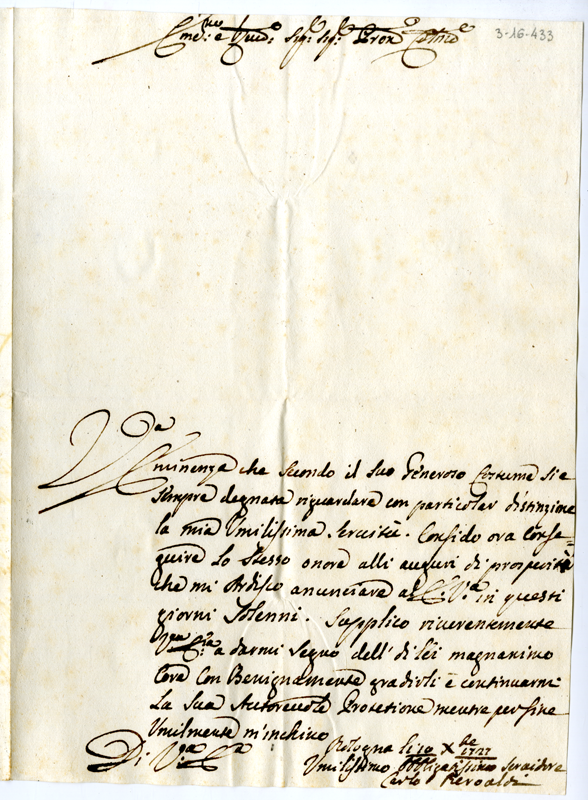 Em:mo e Rmd:o Sig:r Sig:r Pron Colmo
3-16-433
V:ra
Eminenza che secondo il suo Generoso Costume si e
sempre degnata riguardare con particolar distinzione
la mia Umilissima servitù. Confido ora Conse=
guire Lo stesso onore alli auguri di prosperità
che mi Ardisco anunciare all' E. V:a in questi
giorni Solenni. Supplico riverentemente
V:ra E:za a darmi segno dell' di Lei magnanimo
Core Con Benignamente gradirli e continuarmi
La Sua Autorevole Protetione mentre per fine
Umilmente m'inchino
Di V:ra E:a
Bologna li 10 Xbre 1727
Umilissimo Obbligatissimo Servidore
Carlo Beroaldi